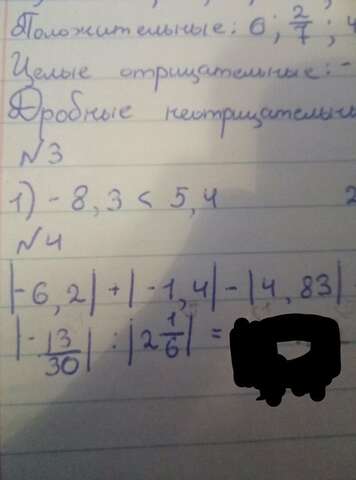 Положительные: 6; 2/7; 4
Целые отрицательные: -
Дробные неотрицательны
N3
1) - 8,3 < 5,4 2
N4
|-6,2| + |-1,4| - |4,83|
|-13/30| : |2 1/6| =